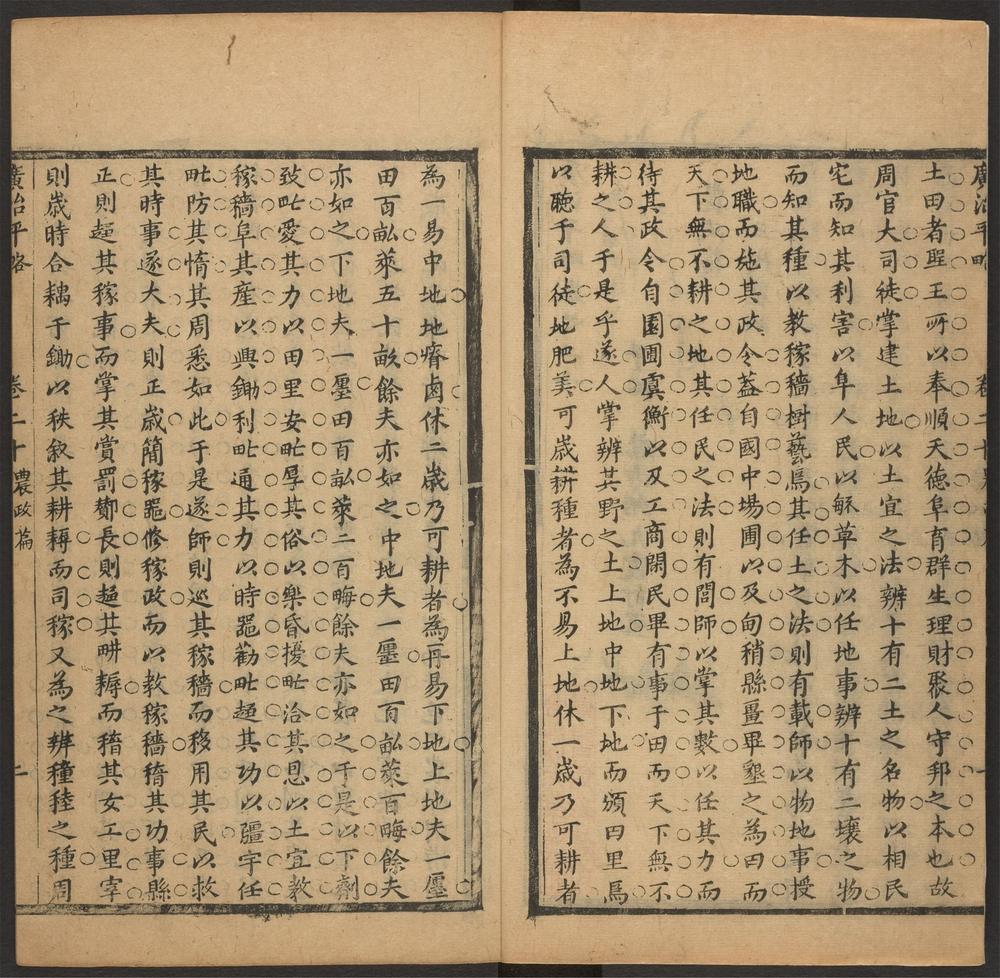 廣治平略 卷二十 一
土田者聖王所以奉順天德阜育群生理財聚人守邦之本也故
周官大司徒掌建土地以土宜之法辨十有二土之名物以相民
宅而知其利害以阜人民以蘇草木以任地事辨十有二壤之物
而知其種以教稼穡樹藝焉其任土之法則有載師以物地事授
地職而施其政令葢自國中場圃以及甸稍縣畺畢墾之為田而
天下無不耕之地其任民之法則有閭師以掌其數以任其力而
待其政令自園圃虞衡以及工商閑民畢有事于田而天下無不
耕之人于是乎遂人掌辨其野之土上地中地下地而頒田里焉
以聽于司徒地肥美可歲耕種者為不易上地休一歲乃可耕者
為一易中地地瘠鹵休二歲乃可耕者為再易下地上地夫一廛
田百畝萊五十畝餘夫亦如之中地夫一廛田百畝萊百畮餘夫
亦如之下地夫一廛田百畝萊二百畮餘夫亦如之于是以下劑
致甿愛其力以田里安甿厚其俗以樂昏擾甿洽其恩以土宜教
稼穡阜其產以興鋤利甿通其力以時噐勸甿趨其功以疆宇任
甿防其惰其周悉如此于是遂師則巡其稼穡而移用其民以救
其時事遂大夫則正歲簡稼噐修稼政而以教稼穡稽其功事縣
正則趨其稼事而掌其賞罰酇長則趨其耕耨而稽其女工里宰
則歲時合耦于鋤以秩敘其耕耨而司稼又為之辨穜稑之種周
廣治平略 卷二十 農政篇 二